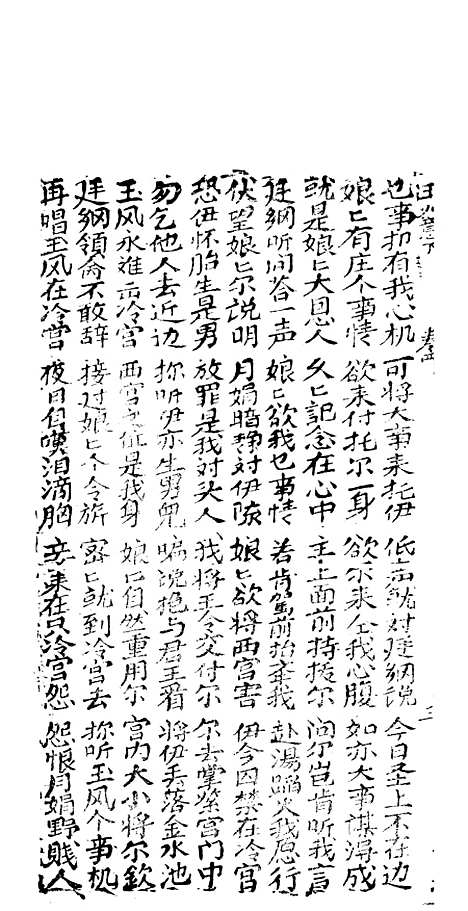 也事抑有我心机 可将大事来托伊 低言就对廷綱说 今日圣上不在边
娘匕有庄个事情 欲来付托尔一身 欲尔来仝我心腹 如亦大事谋得成
就是娘匕大恩人 久匕記念在心中 主上面前持援尔 问尔岂肯听我言
廷綱听问答一声 娘匕欲我也事情 若肯駕前抬举我 赴湯蹈火我愿行
伏望娘匕尔说明 月娟暗静对伊陈 娘匕欲将西宫害 伊今囚禁在冷宫
恐伊怀胎生是男 放罪是我对头人 我将王令交付尔 尔去掌鉴宫门中
勿乞他人去近边 听伊亦生男兒 瞞说抱与君王看 将伊丢落金水池
玉风永难出冷宫 西宫是我身 娘匕自然重用尔 宫内大小将尔欽
廷綱領命不敢辞 接过娘匕个令旂 密匕就到冷宫去 听玉风个事机
再唱玉风在冷宫 夜日自嘆泪滴胸 来在只冷宫怨 怨恨月娟野賎人